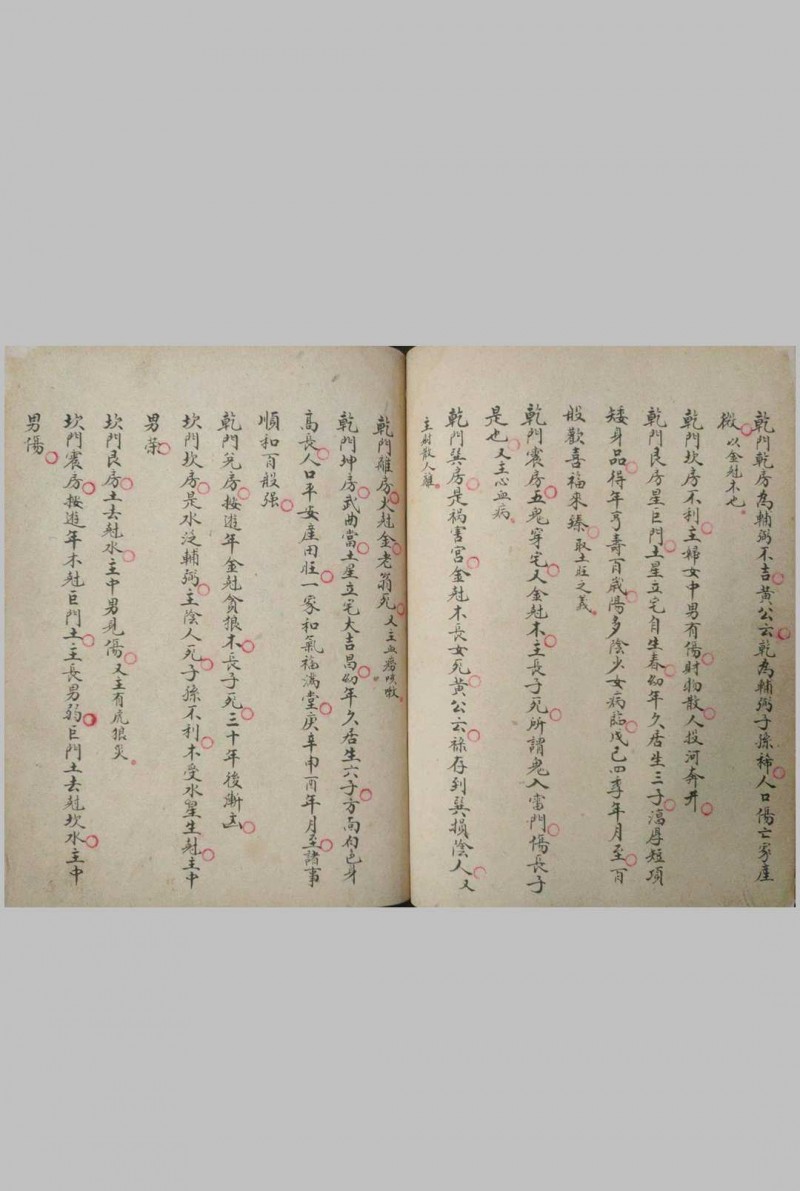 乾門乾房為輔弼不吉黃公云乾為輔弼子孫稀人口傷亡家産
微以金尅木也
乾門坎房不利主婦女中男有傷財物散人投河奔井
乾門艮房星巨門土星立宅自生春㓜年久居生三子濶厚短項
矮身品得年亨壽百歲陽多陰少女病臨戊己四季年月至百
般歡喜福來臻取土旺之義
乾門震房五鬼穿宅人金尅木主長子死所謂鬼入當門傷長子
是也又主心血病
乾門巽房是禍害宮金尅木長女死黃公云祿存到巽損陰人又
主財散人離
乾門離房火尅金老翁死又主血癆咳嗽
乾門坤房武曲當土星立宅大吉昌㓜年久居生六子方面白色身
高長人口平安産田旺一家和氣福滿堂庚辛申酉年月至諸事
順和百般强
乾門兌房按遊年金尅貪狼木長子死三十年後漸凶
坎門坎房是水泛輔弼主陰人死子孫不利木受水星生尅主中
男榮
坎門艮房土去尅水主中男見傷又主有虎狼災
坎門震房按遊年木尅巨門土主長男弱巨門土去尅坎水主中
男傷